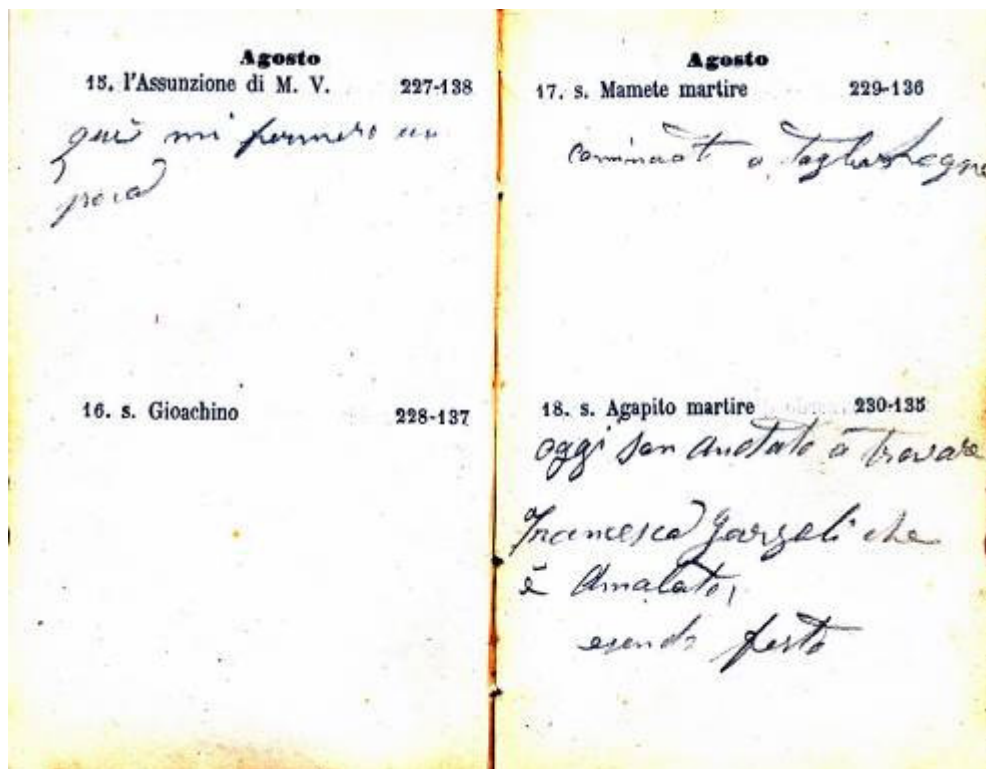 Agosto
15. l'Assunzione di M. V. 227-138
qui mi fermero un
poco
16. s. Gioachino 228-137
Agosto
17. s. Mamete martire 229-136
a tagliar legne
18. s. Agapito martire 230-135
oggi son andato a trovare
Francesco che
è Amalato,
festa